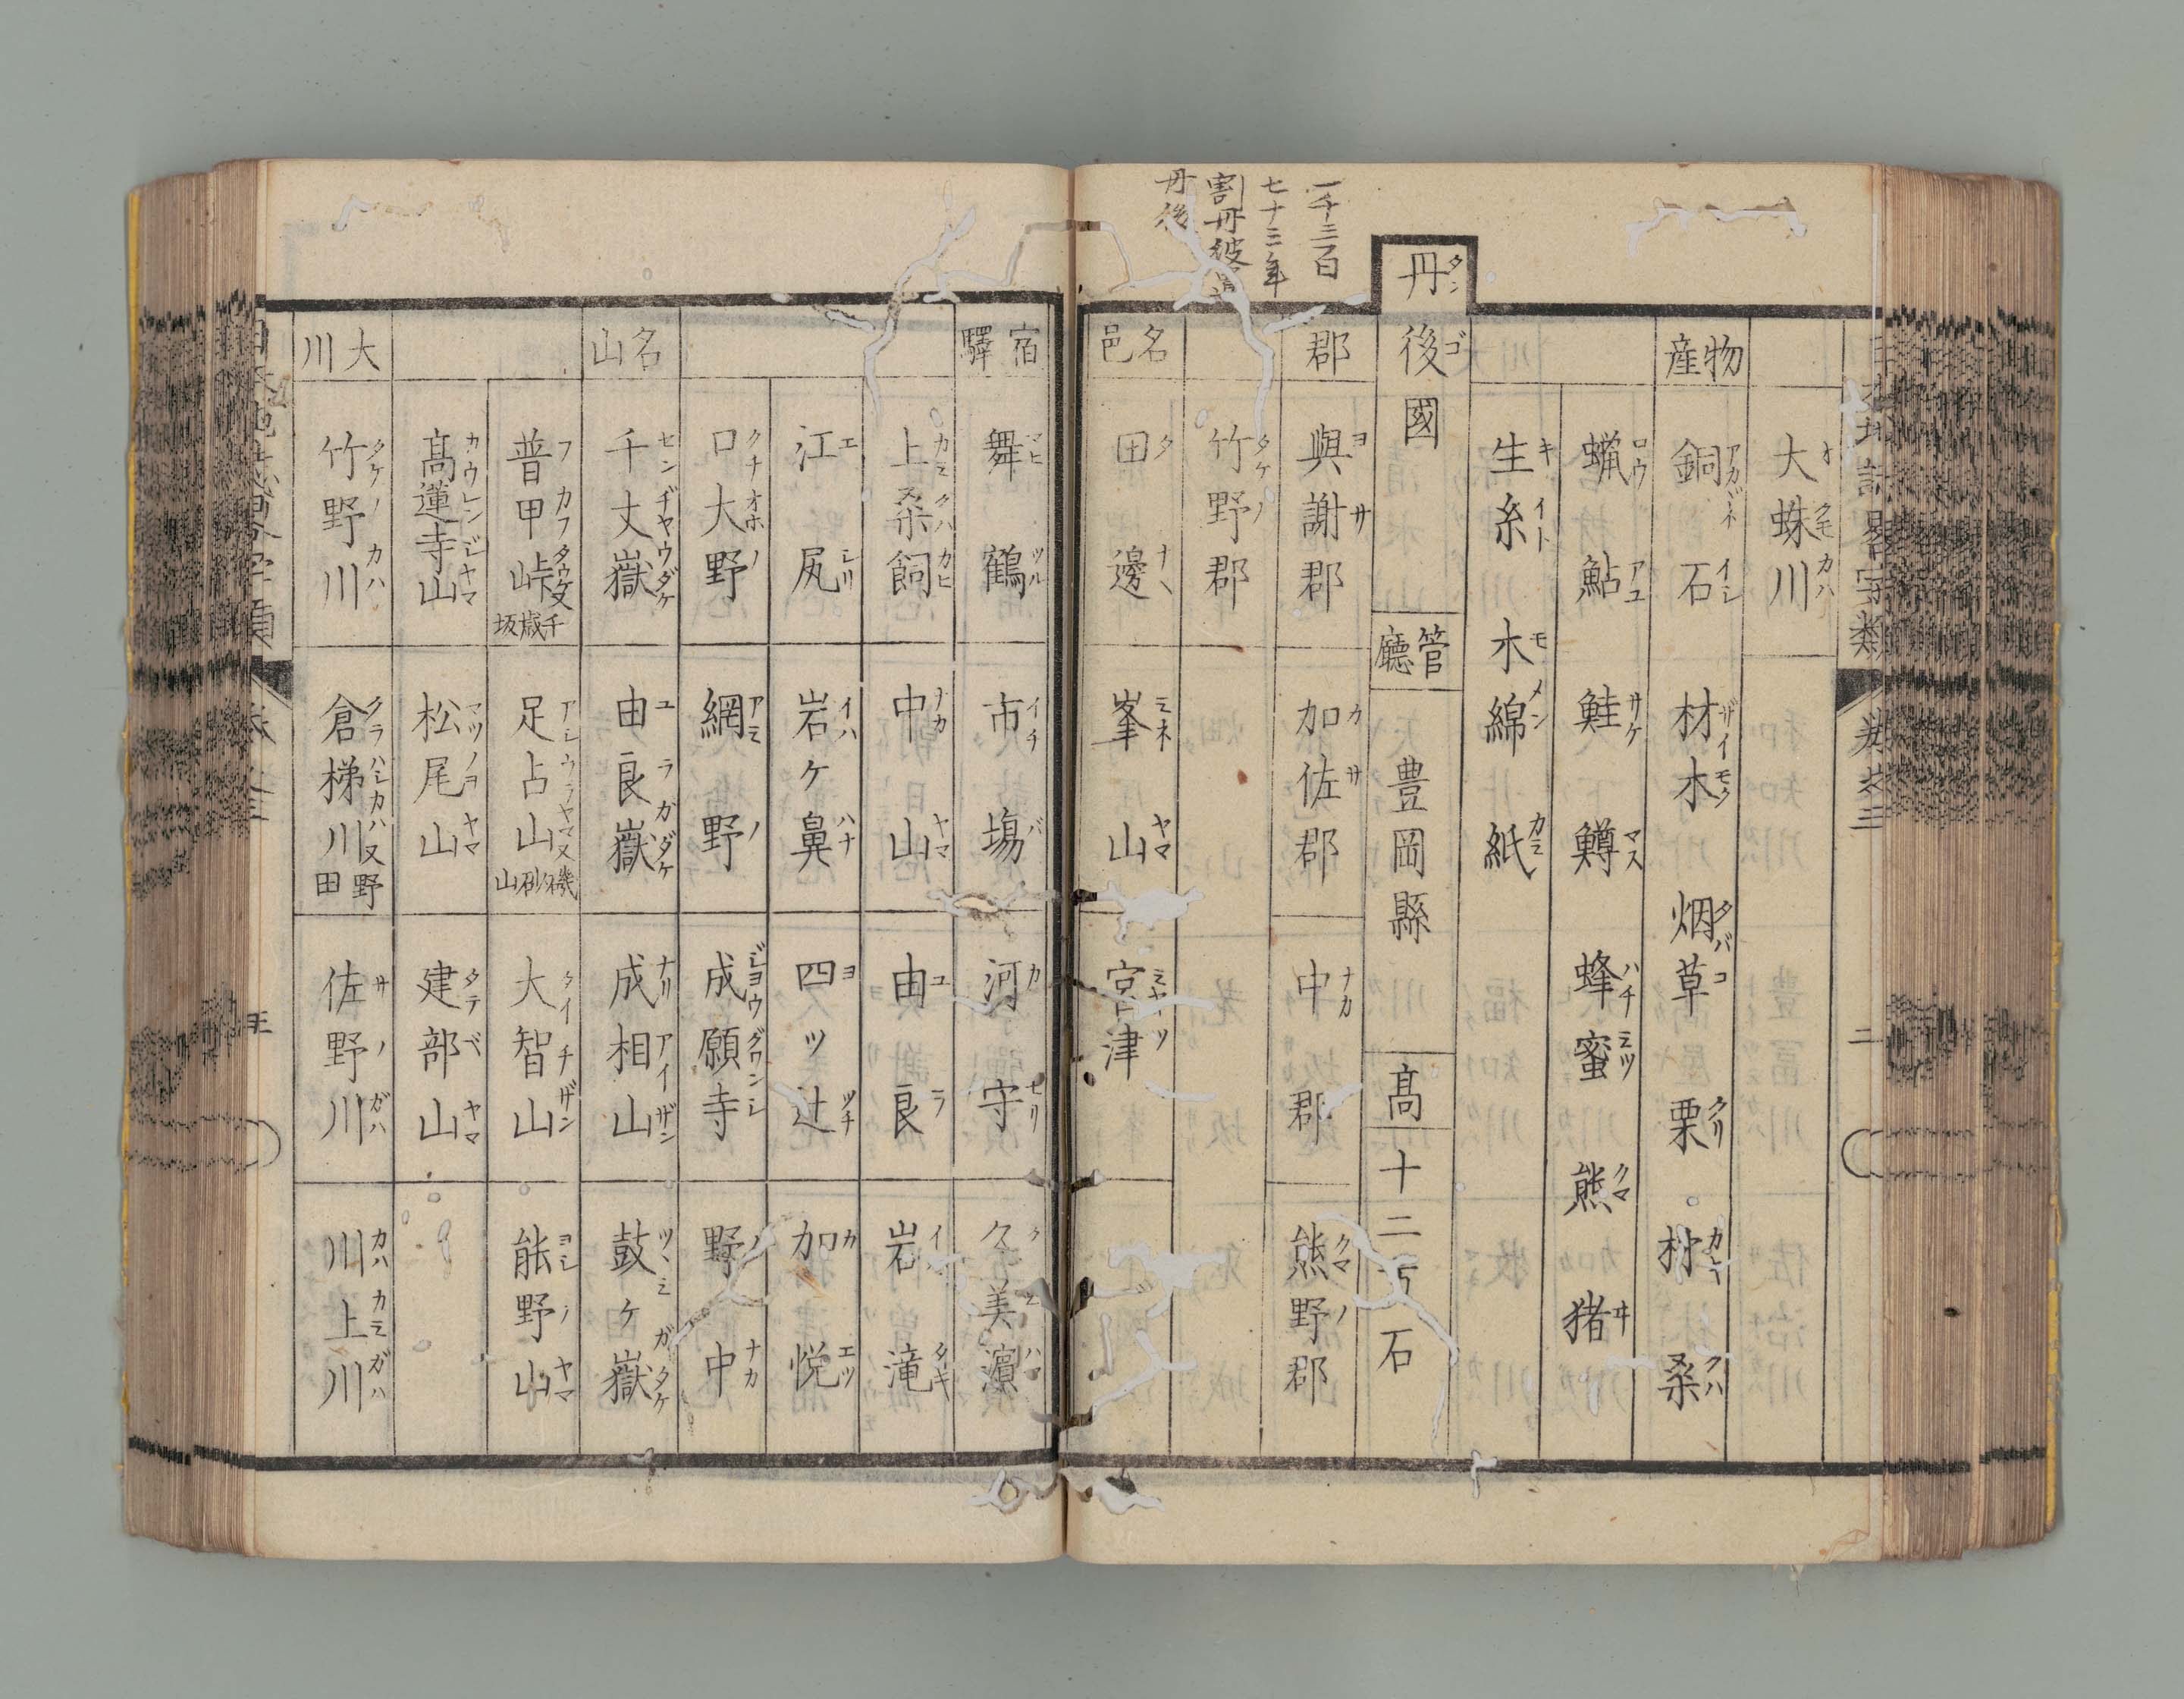 大蛛川
物産
銅 石 材木 烟草 栗 桑
蝋 鮎 鮭 鱒 蜂蜜 熊 猪
生糸 木綿 紙
丹後國 管廳 豊岡縣 高 十二万石
一千三百
七十三年
割丹波
丹後
郡
與謝郡 加佐郡 中郡 熊野郡
竹野郡
名邑
田邊 峯山 宮津
宿驛
舞鶴 市場 河守 久美濱
上桑飼 中山 由良 岩滝
江尻 岩ケ鼻 四ツ辻 加悦
口大野 網野 成願寺 野中
名山
千丈嶽 由良嶽 成相山 鼓ケ嶽
普甲峠又千歳坂 足占山又磯砂山 大智山 能野山
髙蓮寺山 松尾山 建部山
大川
竹野川 倉梯川又野田 佐野川 川上川